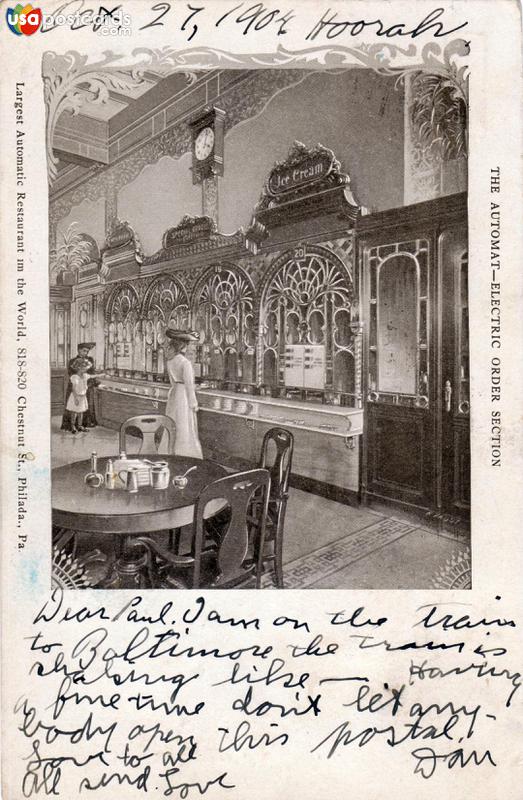 usapostcards.com
Oct. 27, 1904 Hoorah
THE AUTOMAT—ELECTRIC ORDER SECTION
Largest Automatic Restaurant im the World, 818-820 Chestnut St., Philada., Pa.
Ice Cream
20
Dear Paul. I am on the train
to Baltimore the train is
shaking like — Having
a fine time don't let any-
body open this postal.
Love to all Dan
All send Love